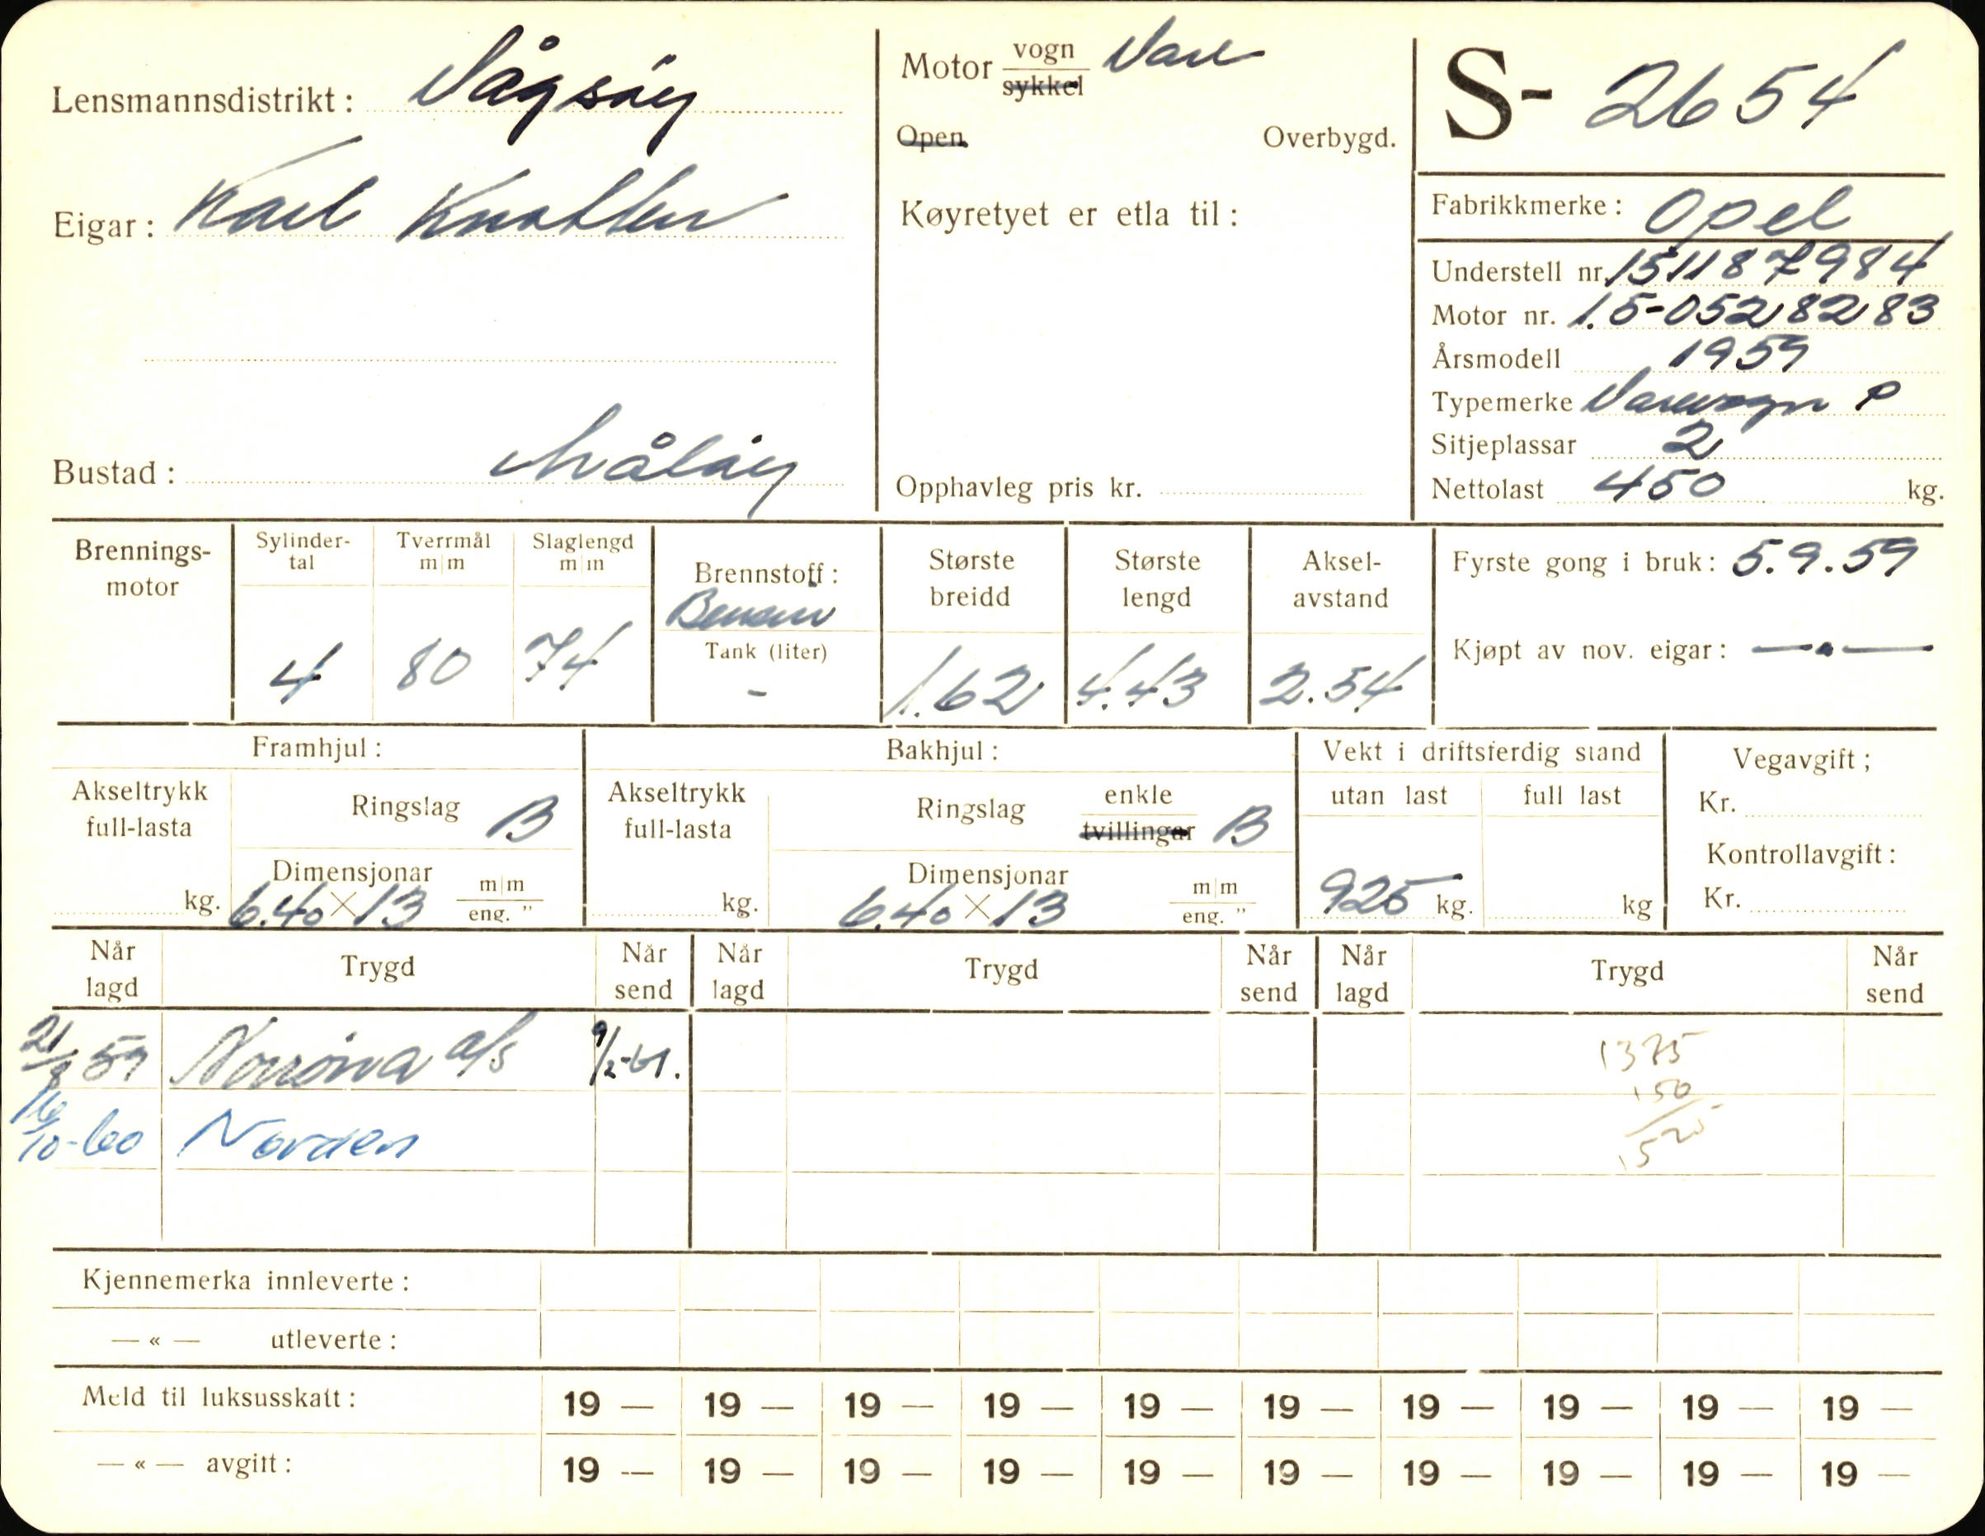 Lensmannsdistrikt: Vågsøy
Eigar: Karl Knatten
Bustad: Måløy
Motor vogn Vare
sykkel
Open Overbygd.
Køyretyet er etla til:
Opphavleg pris kr.
S- 2654
Fabrikkmerke: Opel
Understell nr. 151187984
Motor nr. 1.5-0528283
Årsmodell 1959
Typemerke Varevogn P
Sitjeplassar 2
Nettolast 450 kg.
Brennings-
motor
Sylinder-
tal
4
Tverrmål
m|m
80
Slaglengd
m|m
74
Brennstoff:
Bensin
Tank (liter)
-
Største
breidd
1.62
Største
lengd
4.43
Aksel-
avstand
2.54
Fyrste gong i bruk: 5.9.59
Kjøpt av nov. eigar: — . —
Framhjul:
Akseltrykk
full-lasta
kg.
Ringslag B
Dimensjonar
6.40 × 13 m|m
eng. "
Bakhjul:
Akseltrykk
full-lasta
kg.
Ringslag enkle
tvillingar B
Dimensjonar
6.40 × 13 m|m
eng. "
Vekt i driftsferdig stand
utan last full last
925 kg. kg
Vegavgift;
Kr.
Kontrollavgift:
Kr.
Når
lagd Trygd Når
send Når
lagd Trygd Når
send Når
lagd Trygd Når
send
21/8 59 Norrøna a/s 9/2-61.
1375
150
16/10-60 Norden
Kjennemerka innleverte:
— « — utleverte:
Meld til luksusskatt: 19 — 19 — 19 — 19 — 19 — 19 — 19 — 19 — 19 — 19 —
— « — avgift: 19 — 19 — 19 — 19 — 19 — 19 — 19 — 19 — 19 — 19 —